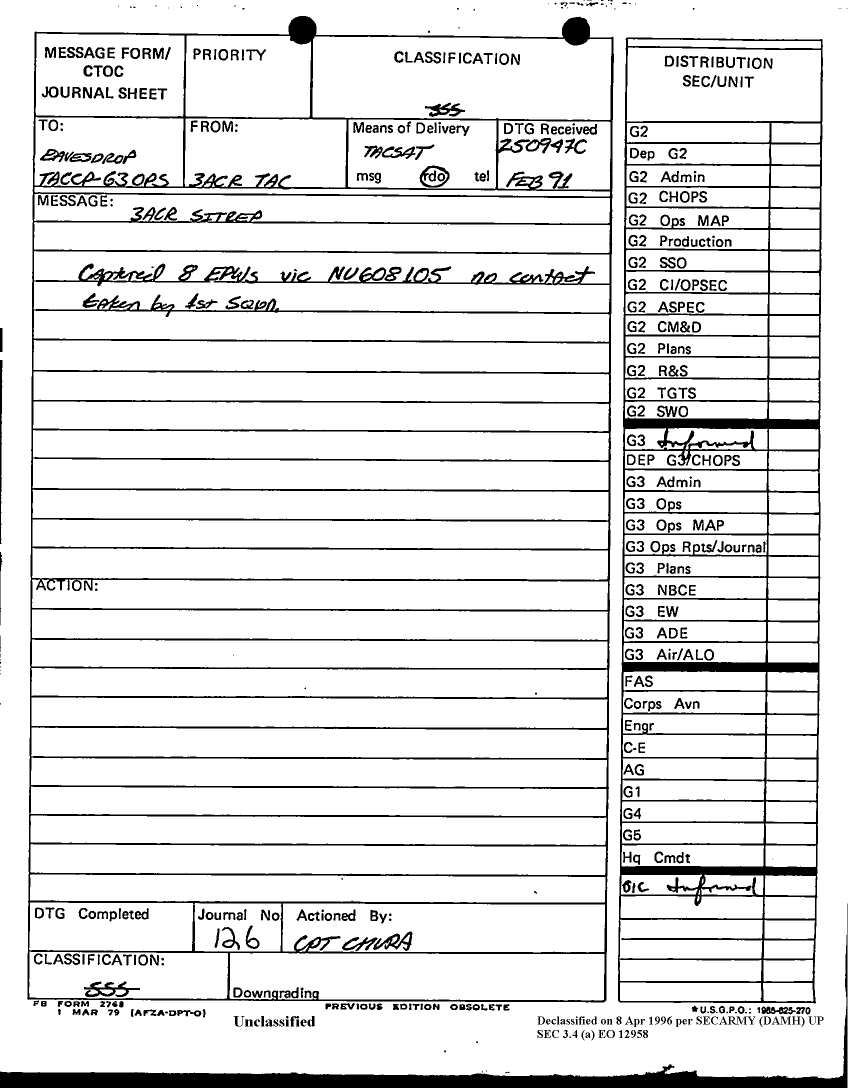 MESSAGE FORM/
CTOC
JOURNAL SHEET
PRIORITY
CLASSIFICATION
SSS
TO:
EAVESDROP
TACCP-G3 OPS
FROM:
3ACR TAC
Means of Delivery
TACSAT
msg rdo tel
DTG Received
250947C
FEB 91
MESSAGE:
3ACR SITREP
Captured 8 EPWs vic NU608105 no contact
taken by 1st Sqdn.
ACTION:
DTG Completed
Journal No
126
Actioned By:
CPT CHURA
CLASSIFICATION:
SSS
Downgrading
FB FORM 2768
1 MAR 79 (AFZA-DPT-O)
PREVIOUS EDITION OBSOLETE
DISTRIBUTION
SEC/UNIT
G2
Dep G2
G2 Admin
G2 CHOPS
G2 Ops MAP
G2 Production
G2 SSO
G2 CI/OPSEC
G2 ASPEC
G2 CM&D
G2 Plans
G2 R&S
G2 TGTS
G2 SWO
G3 Informed
DEP G3/CHOPS
G3 Admin
G3 Ops
G3 Ops MAP
G3 Ops Rpts/Journal
G3 Plans
G3 NBCE
G3 EW
G3 ADE
G3 Air/ALO
FAS
Corps Avn
Engr
C-E
AG
G1
G4
G5
Hq Cmdt
OIC Informed
*U.S.G.P.O.: 1985-625-270
Unclassified
Declassified on 8 Apr 1996 per SECARMY (DAMH) UP
SEC 3.4 (a) EO 12958